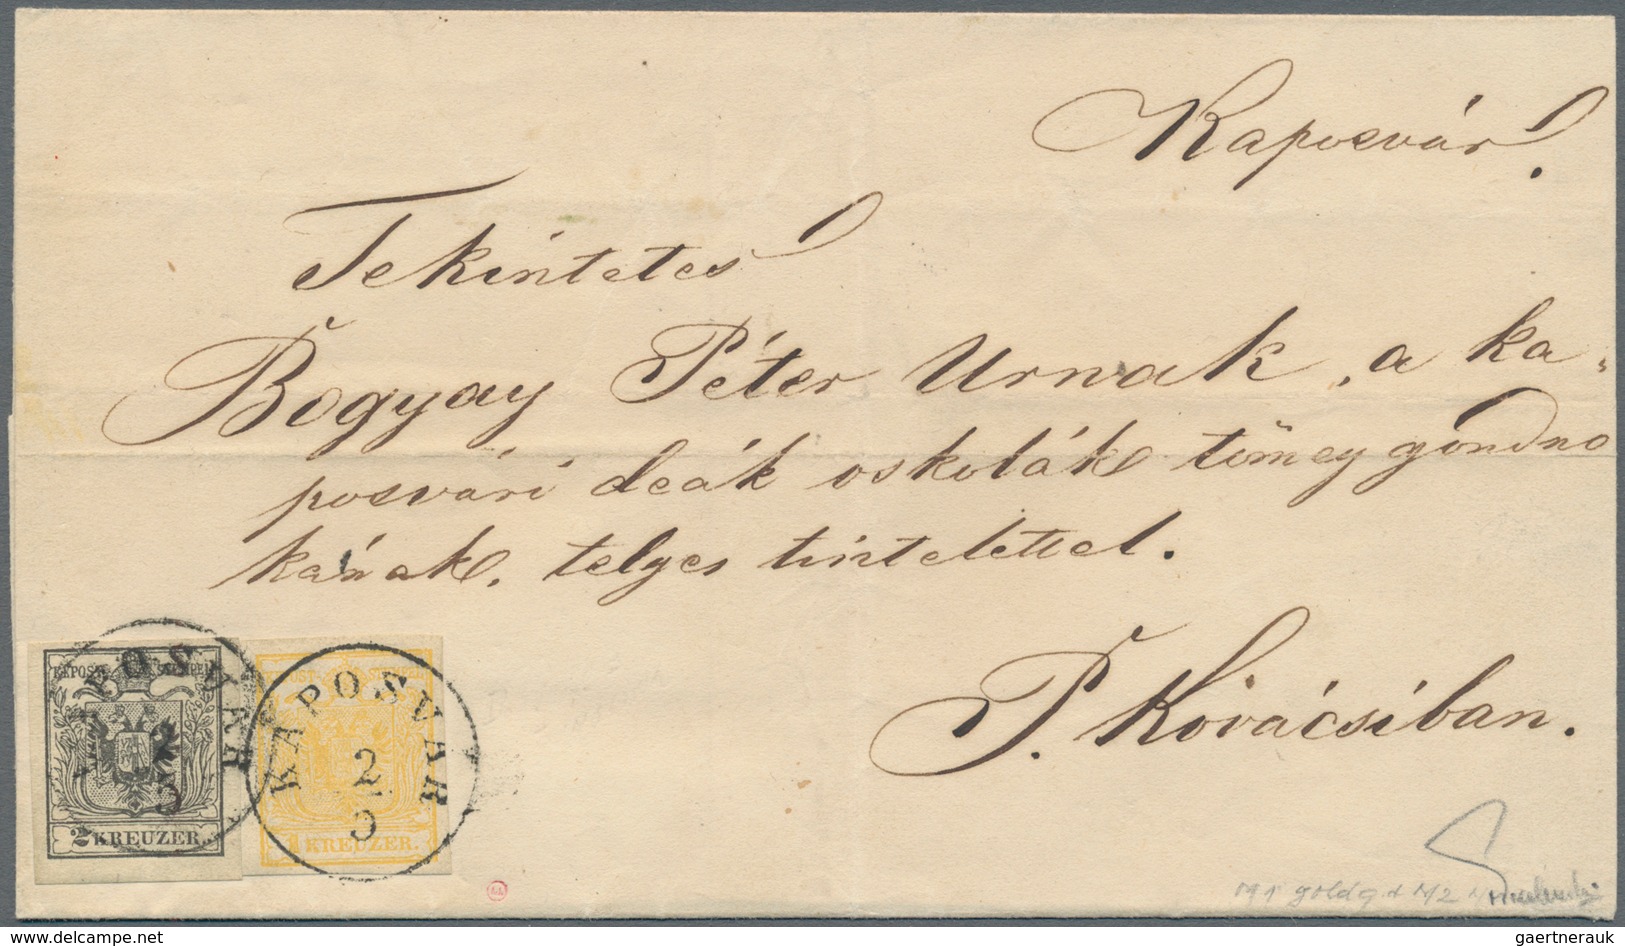 Kaposvár.
Tekintetes
Bogyay Péter Urnak, a ka-
posvári deák oskolák tömeggondno
kának, telyes tisztelettel.
P. Kovácsiban.
KAPOSVAR
2
5
KAPOSVAR
2
5
K.K.POST-STEMPEL
2 KREUZER.
1 KREUZER.
M1 goldg + M2
www.delcampe.net
gaertnerauk